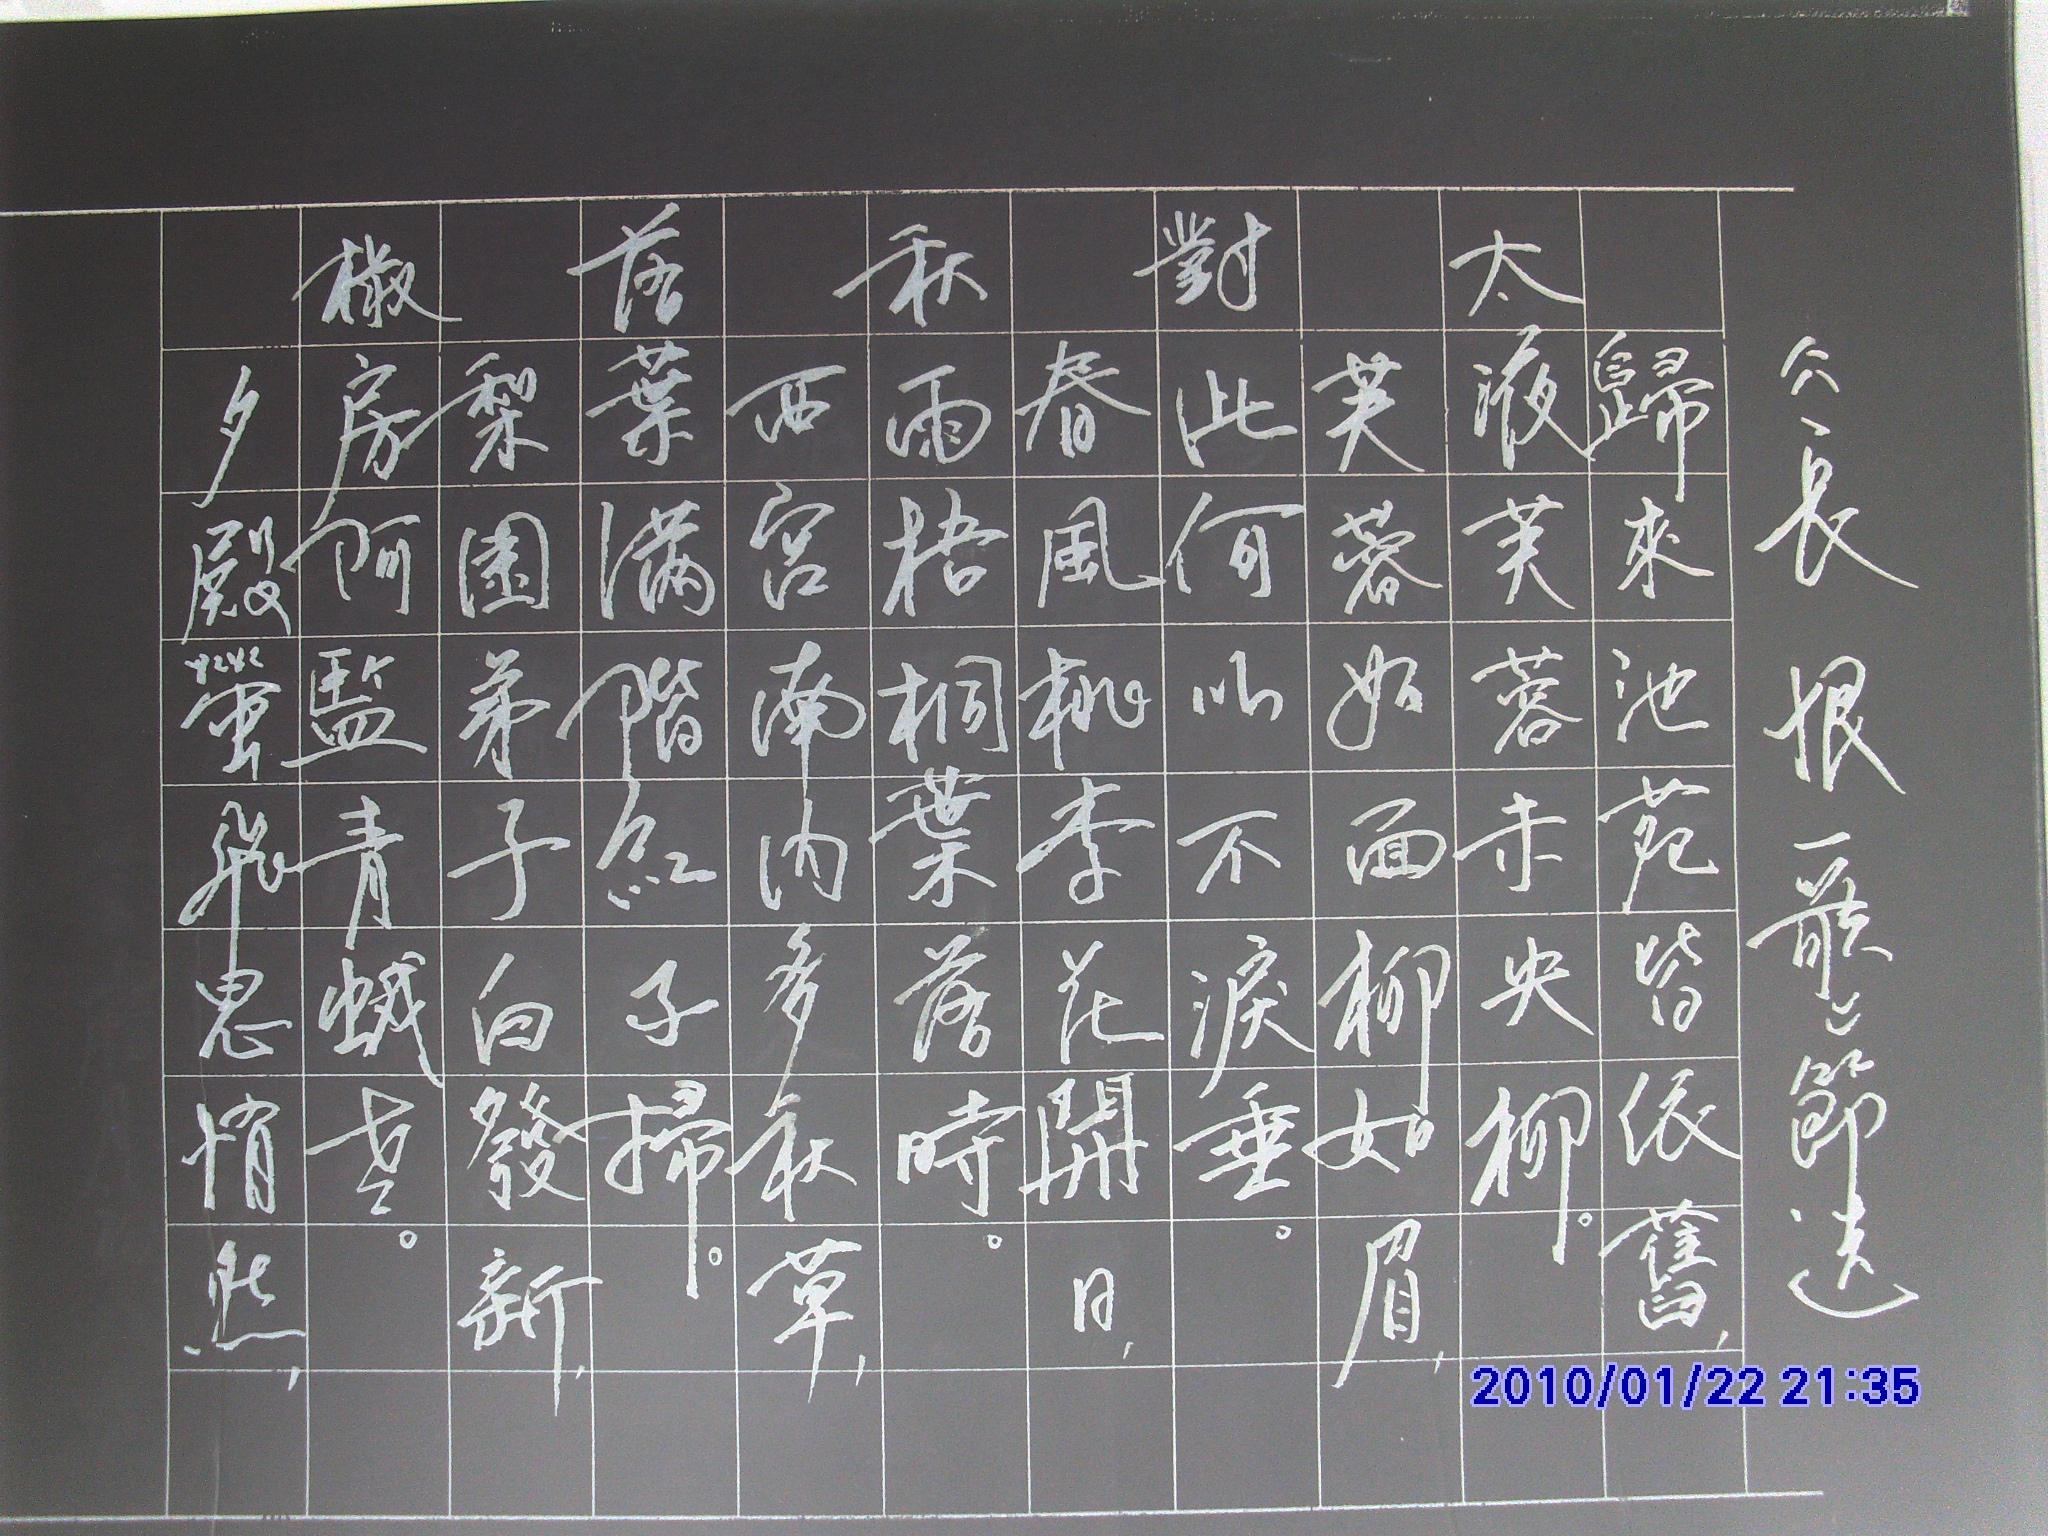 六、長恨節選
歸來池苑皆依舊,
太液芙蓉未央柳。
芙蓉如面柳如眉,
對此何以不淚垂。
春風桃李花開日,
秋雨梧桐葉落時。
西宮南內多秋草,
落葉滿階紅不掃。
梨園弟子白發新,
椒房阿監青蛾老。
夕殿螢飛思悄然,
2010/01/22 21:35